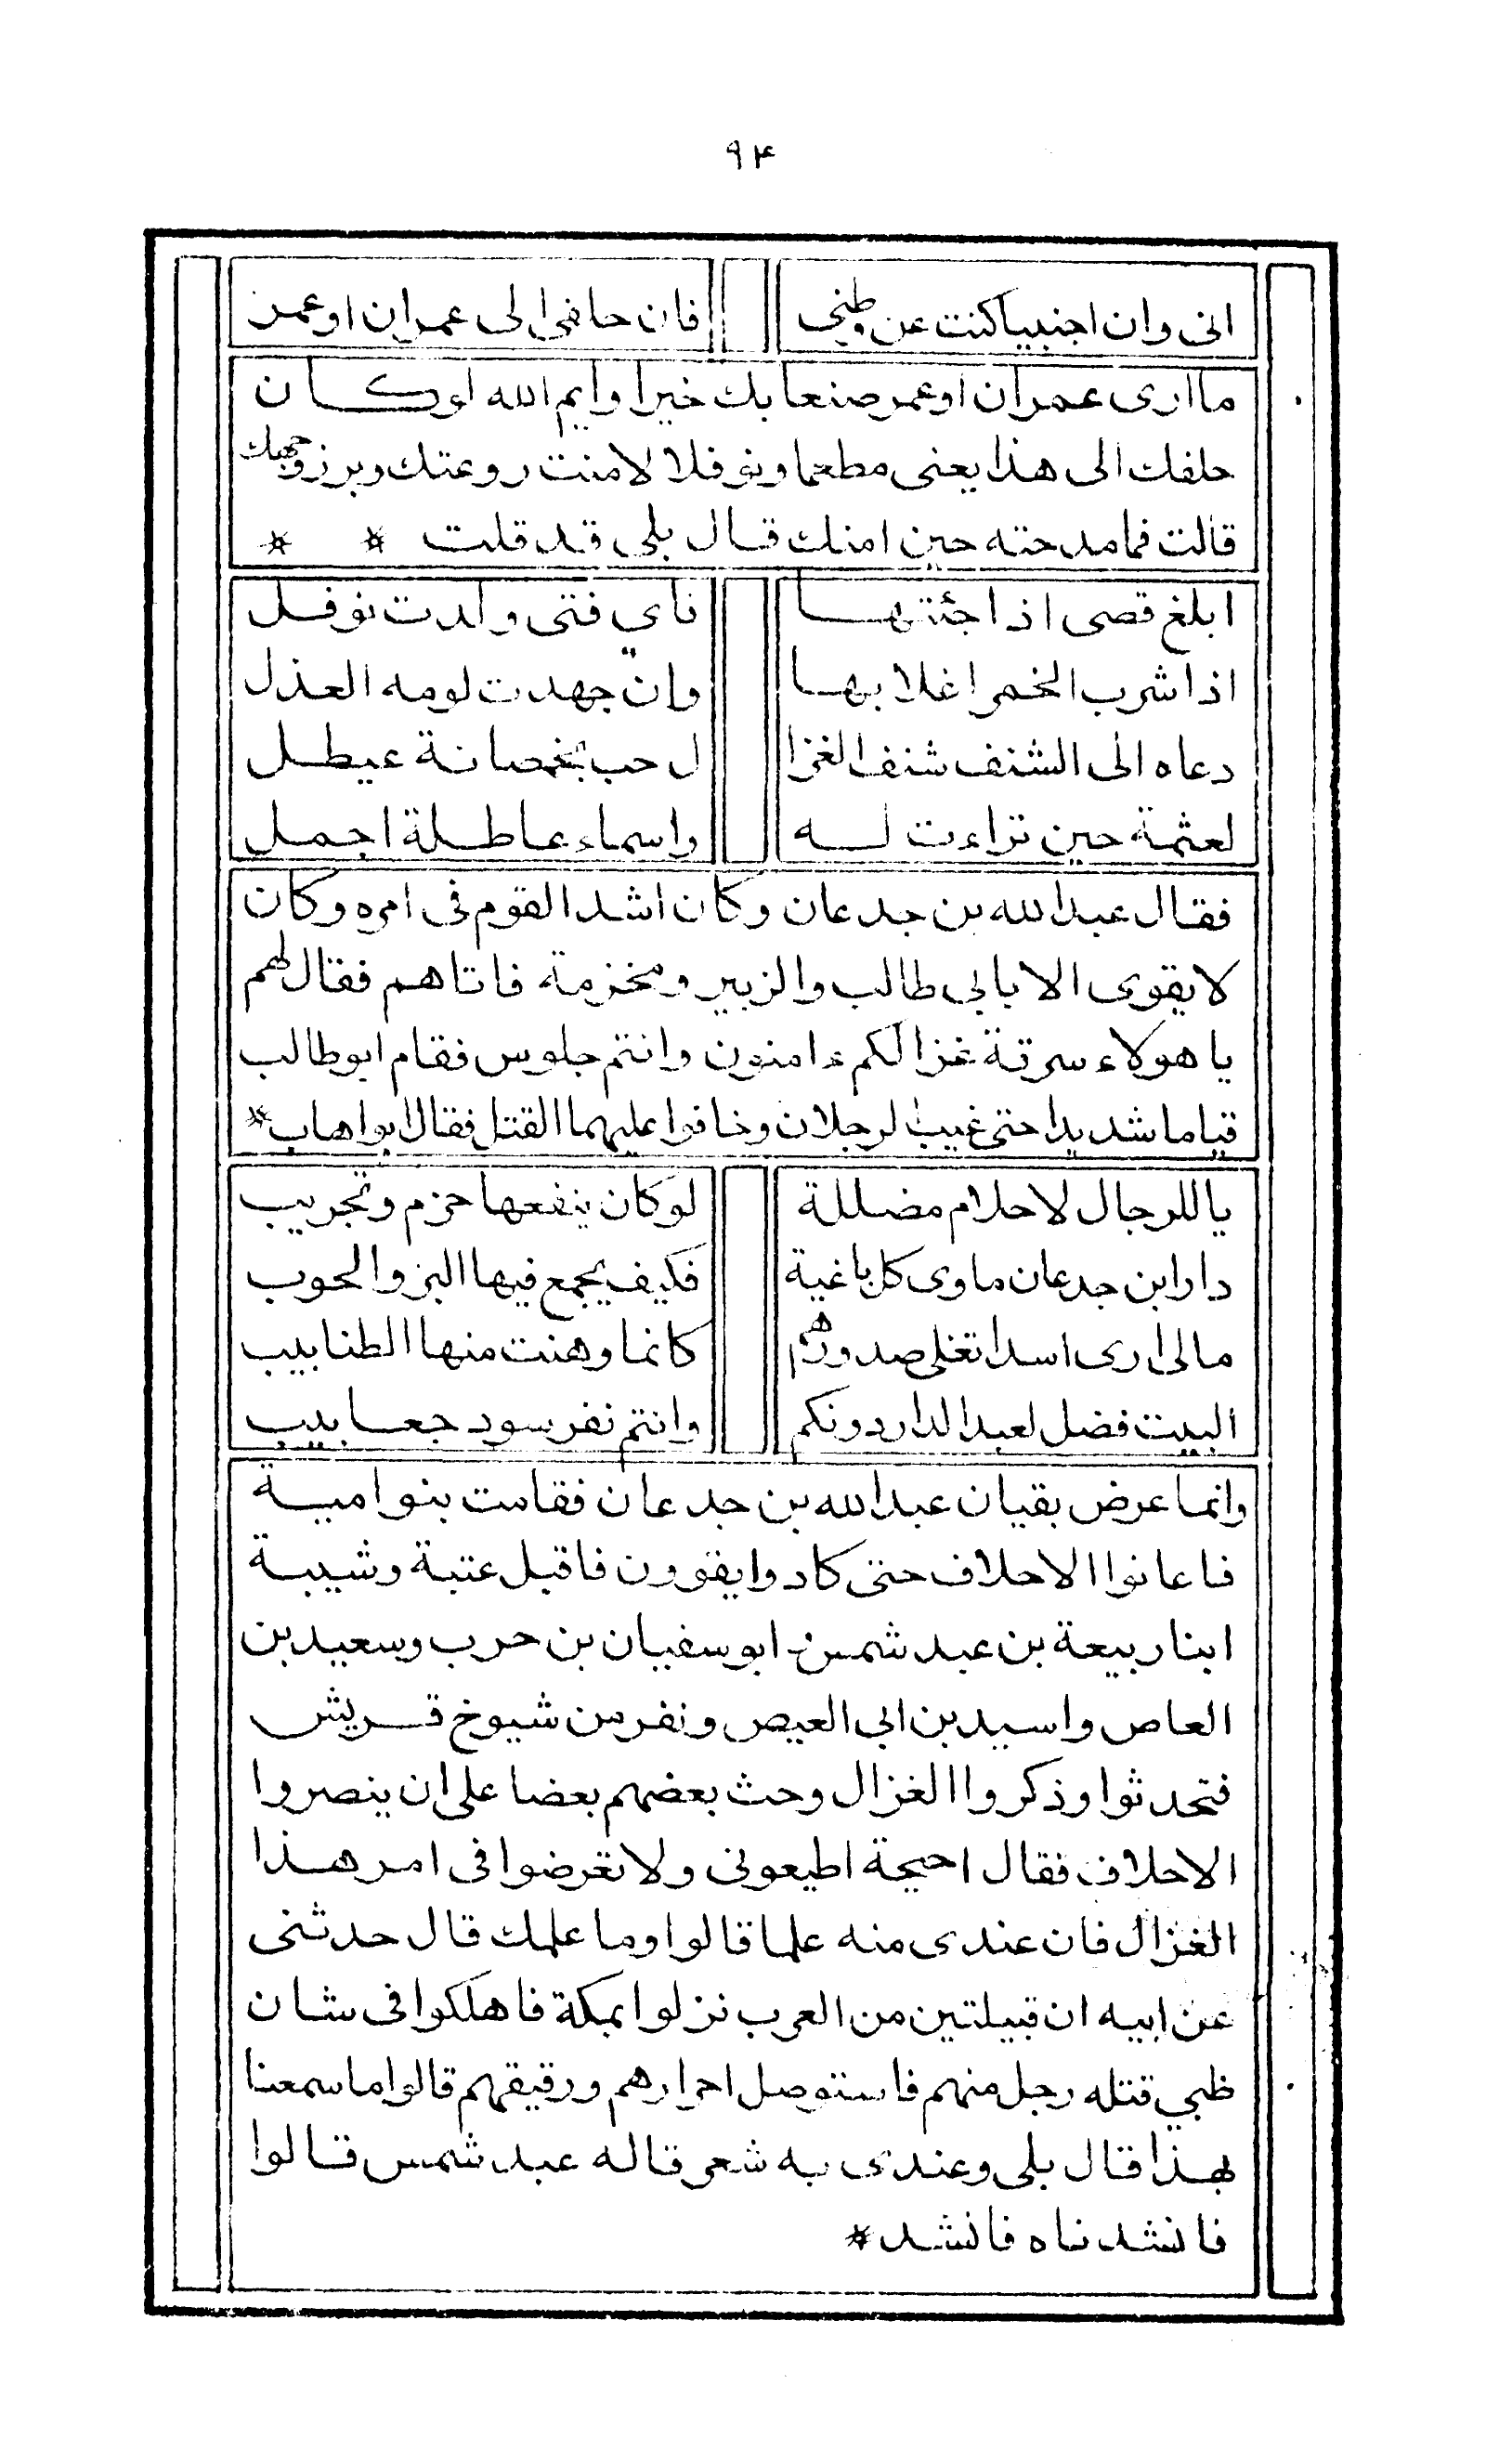 ٩٤
انى وان اجنبيا كنت عن وطنى فان حلفى الى عمران او عمر
ما ارى عمران او عمر صنعا بك خيرا وايم الله لو كان
حلفك الى هذا يعنى مطعما ونوفلا لامنت روعتك وبرز وجهك
قالت فما مدحته حين امنك قال بلى قد قلت * *
ابلغ قصى اذا جئتها فاي فتى ولدت نوفل
اذا شرب الخمر اغلا بها وان جهدت لومه العذل
دعاه الى الشنف شنف الغزا ل حب بخمصانة عيطل
لعثمة حين تراءت له واسماء عاطلة اجمل
فقال عبدالله بن جدعان وكان اشد القوم فى امره وكان
لا يقوى الا بابي طالب والزبير ومخزمة فاتاهم فقال لهم
يا هولاء سرقة غزالكم ءامنون وانتم جلوس فقام ابوطالب
قياما شديدا حتى غيب الرجلان وخافوا عليهما القتل فقال ابو اهاب *
يا للرجال لاحلام مضللة لو كان ينفعها حزم وتجريب
دار ابن جدعان ماوى كل باغية فكيف يجمع فيها البر والحوب
مالى ارى اسدا تغلى صدورهم كانما وهنت منها الطنابيب
البيت فضل لعبد الدار دونكم وانتم نفر سود جعابيب
وانما عرض بقيان عبدالله بن جدعان فقامت بنو امية
فاعانوا الاحلاف حتى كادوا يقوون فاقبل عتبة وشيبة
ابنا ربيعة بن عبد شمس ابو سفيان بن حرب وسعيد بن
العاص واسيد بن ابى العيص ونفر من شيوخ قريش
فتحدثوا وذكروا الغزال وحث بعضهم بعضا على ان ينصروا
الاحلاف فقال احيحة اطيعونى ولا تعرضوا فى امر هذا
الغزال فان عندى منه علما قالوا وما علمك قال حدثنى
عن ابيه ان قبيلتين من العرب نزلوا بمكة فاهلكوا فى شان
ظبي قتله رجل منهم فاستوصل احرارهم ورقيقهم قالوا ما سمعنا
بهذا قال بلى وعندى به شعر قاله عبد شمس قالوا
فانشدناه فانشد *